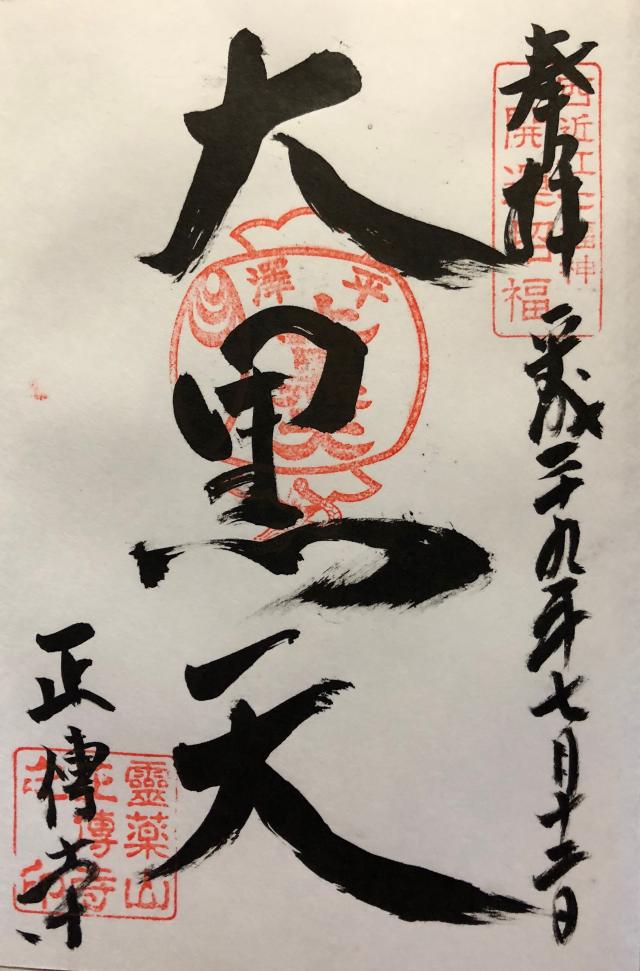 奉拝
西近江七福神
開運招福
平成二十九年七月十二日
大黒天
平澤
正傳寺
靈薬山
正傳寺
之印